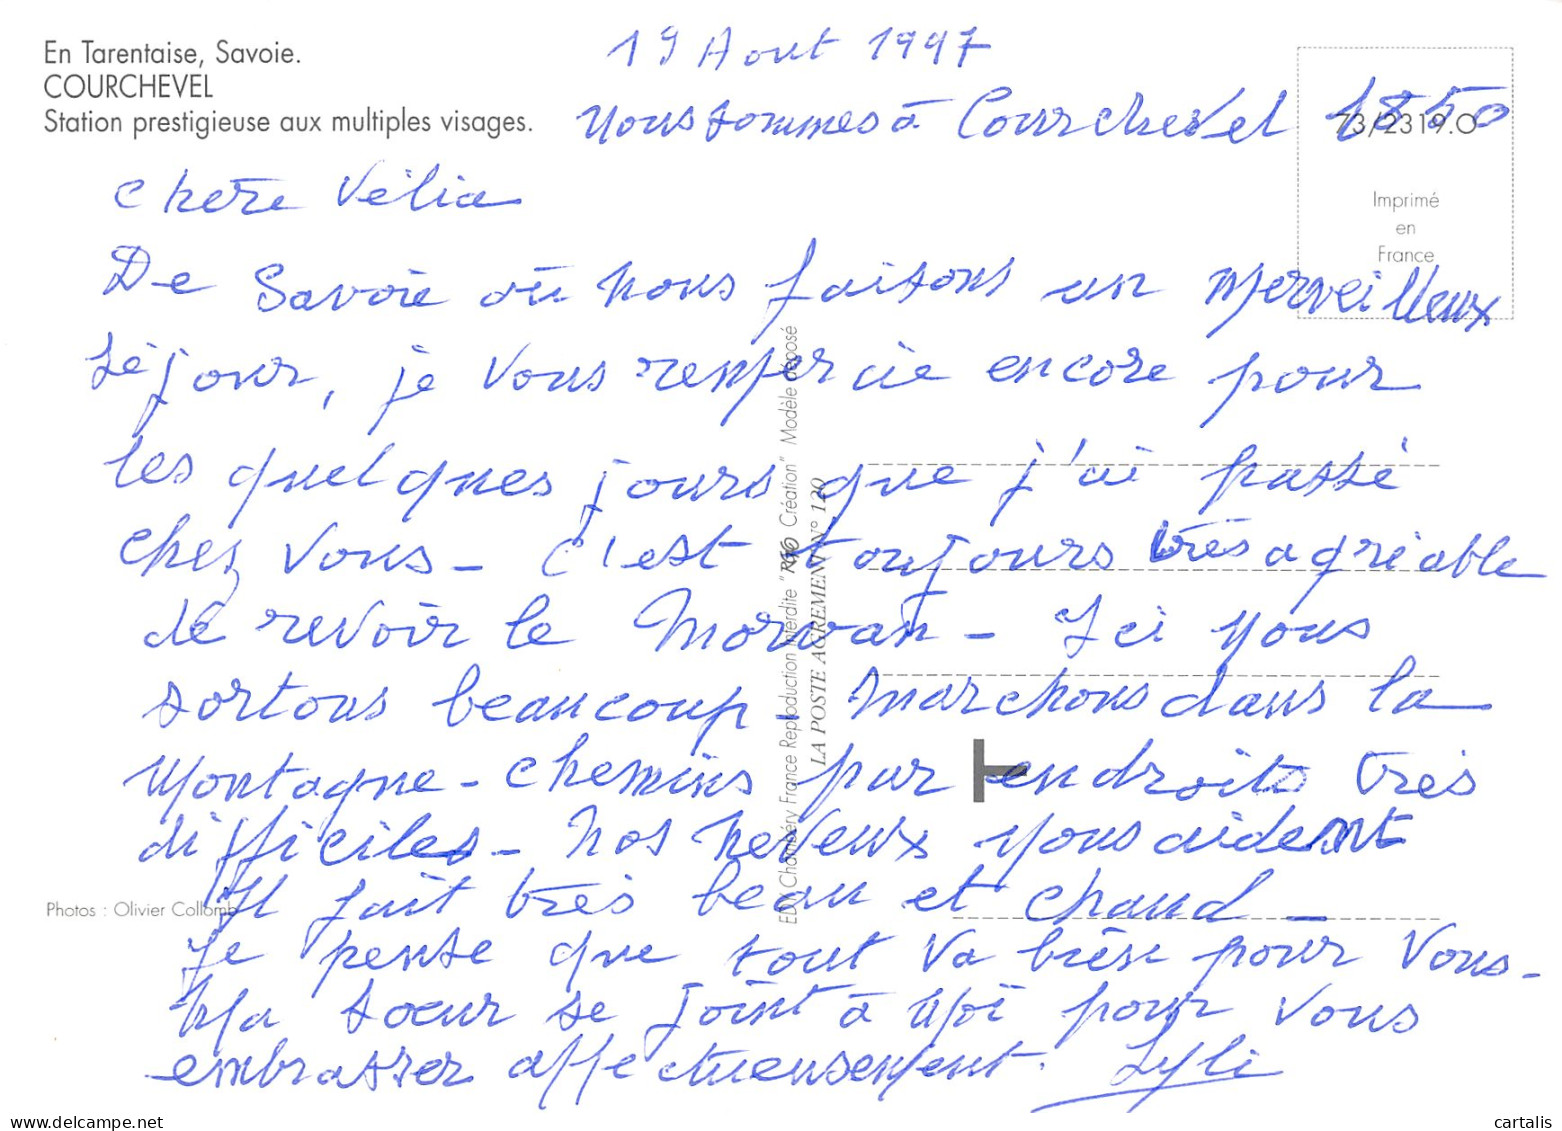 En Tarentaise, Savoie.
COURCHEVEL
Station prestigieuse aux multiples visages.
19 Aout 1997
Nous sommes à Courchevel 1850
73/2319.O
Imprimé
en
France
Chère Vélia
De Savoie où nous faisons un merveilleux
séjour, je vous remercie encore pour
les quelques jours que j'ai passé
chez vous - c'est toujours très agréable
de revoir le Morvan - Ici nous
sortons beaucoup, marchons dans la
montagne - chemins par endroits très
difficiles - nos neveux nous aident
Il fait très beau et chaud -
Je pense que tout va bien pour vous -
Ma soeur se joint à moi pour vous
embrasser affectueusement.
Photos : Olivier Collomb
EDY Chambéry France Reproduction Interdite "Création" Modèle déposé
LA POSTE AGREMENT N° 120
www.delcampe.net
cartalis